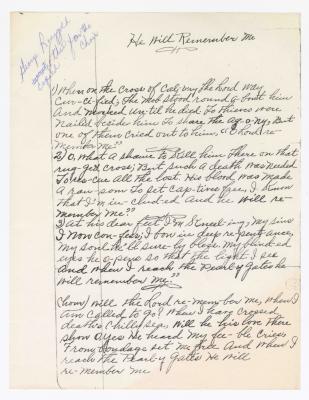 He Will Remember Me
1) When on the cross of Calvry the Lord was
cru-ci-fied; The mob stood 'round a-bout him
and mocked un-til he died Two thieves were
nailed beside him To share the ag-o-ny, But
one of them cried out to him, "O Lord re-
member me"
2) O, What a shame to kill him there on that
rug-ged cross; But such a death was needed
To res-cue all the lost. His blood was made
a ran-som To set cap-tives free, I know
That I'm in-clud-ed and He will re-
member Me"
3) At his dear feet I'm kneel-ing, My sins
I now con-fess; I bow in deep re-pent-ance,
My soul he'll be sure-ly bless. My blind-ed
eyes he o-pens so that the light I see
And when I reach the Pearly Gates he
will remember me"
Will the Lord re-mem-ber me, when I
am called to go? When I have crossed
death's chilly sea, Will he his love there
show O yes He heard my fee-ble cry
From bondage set me free And when I
reach the Pearl-y Gates He will
re-member me